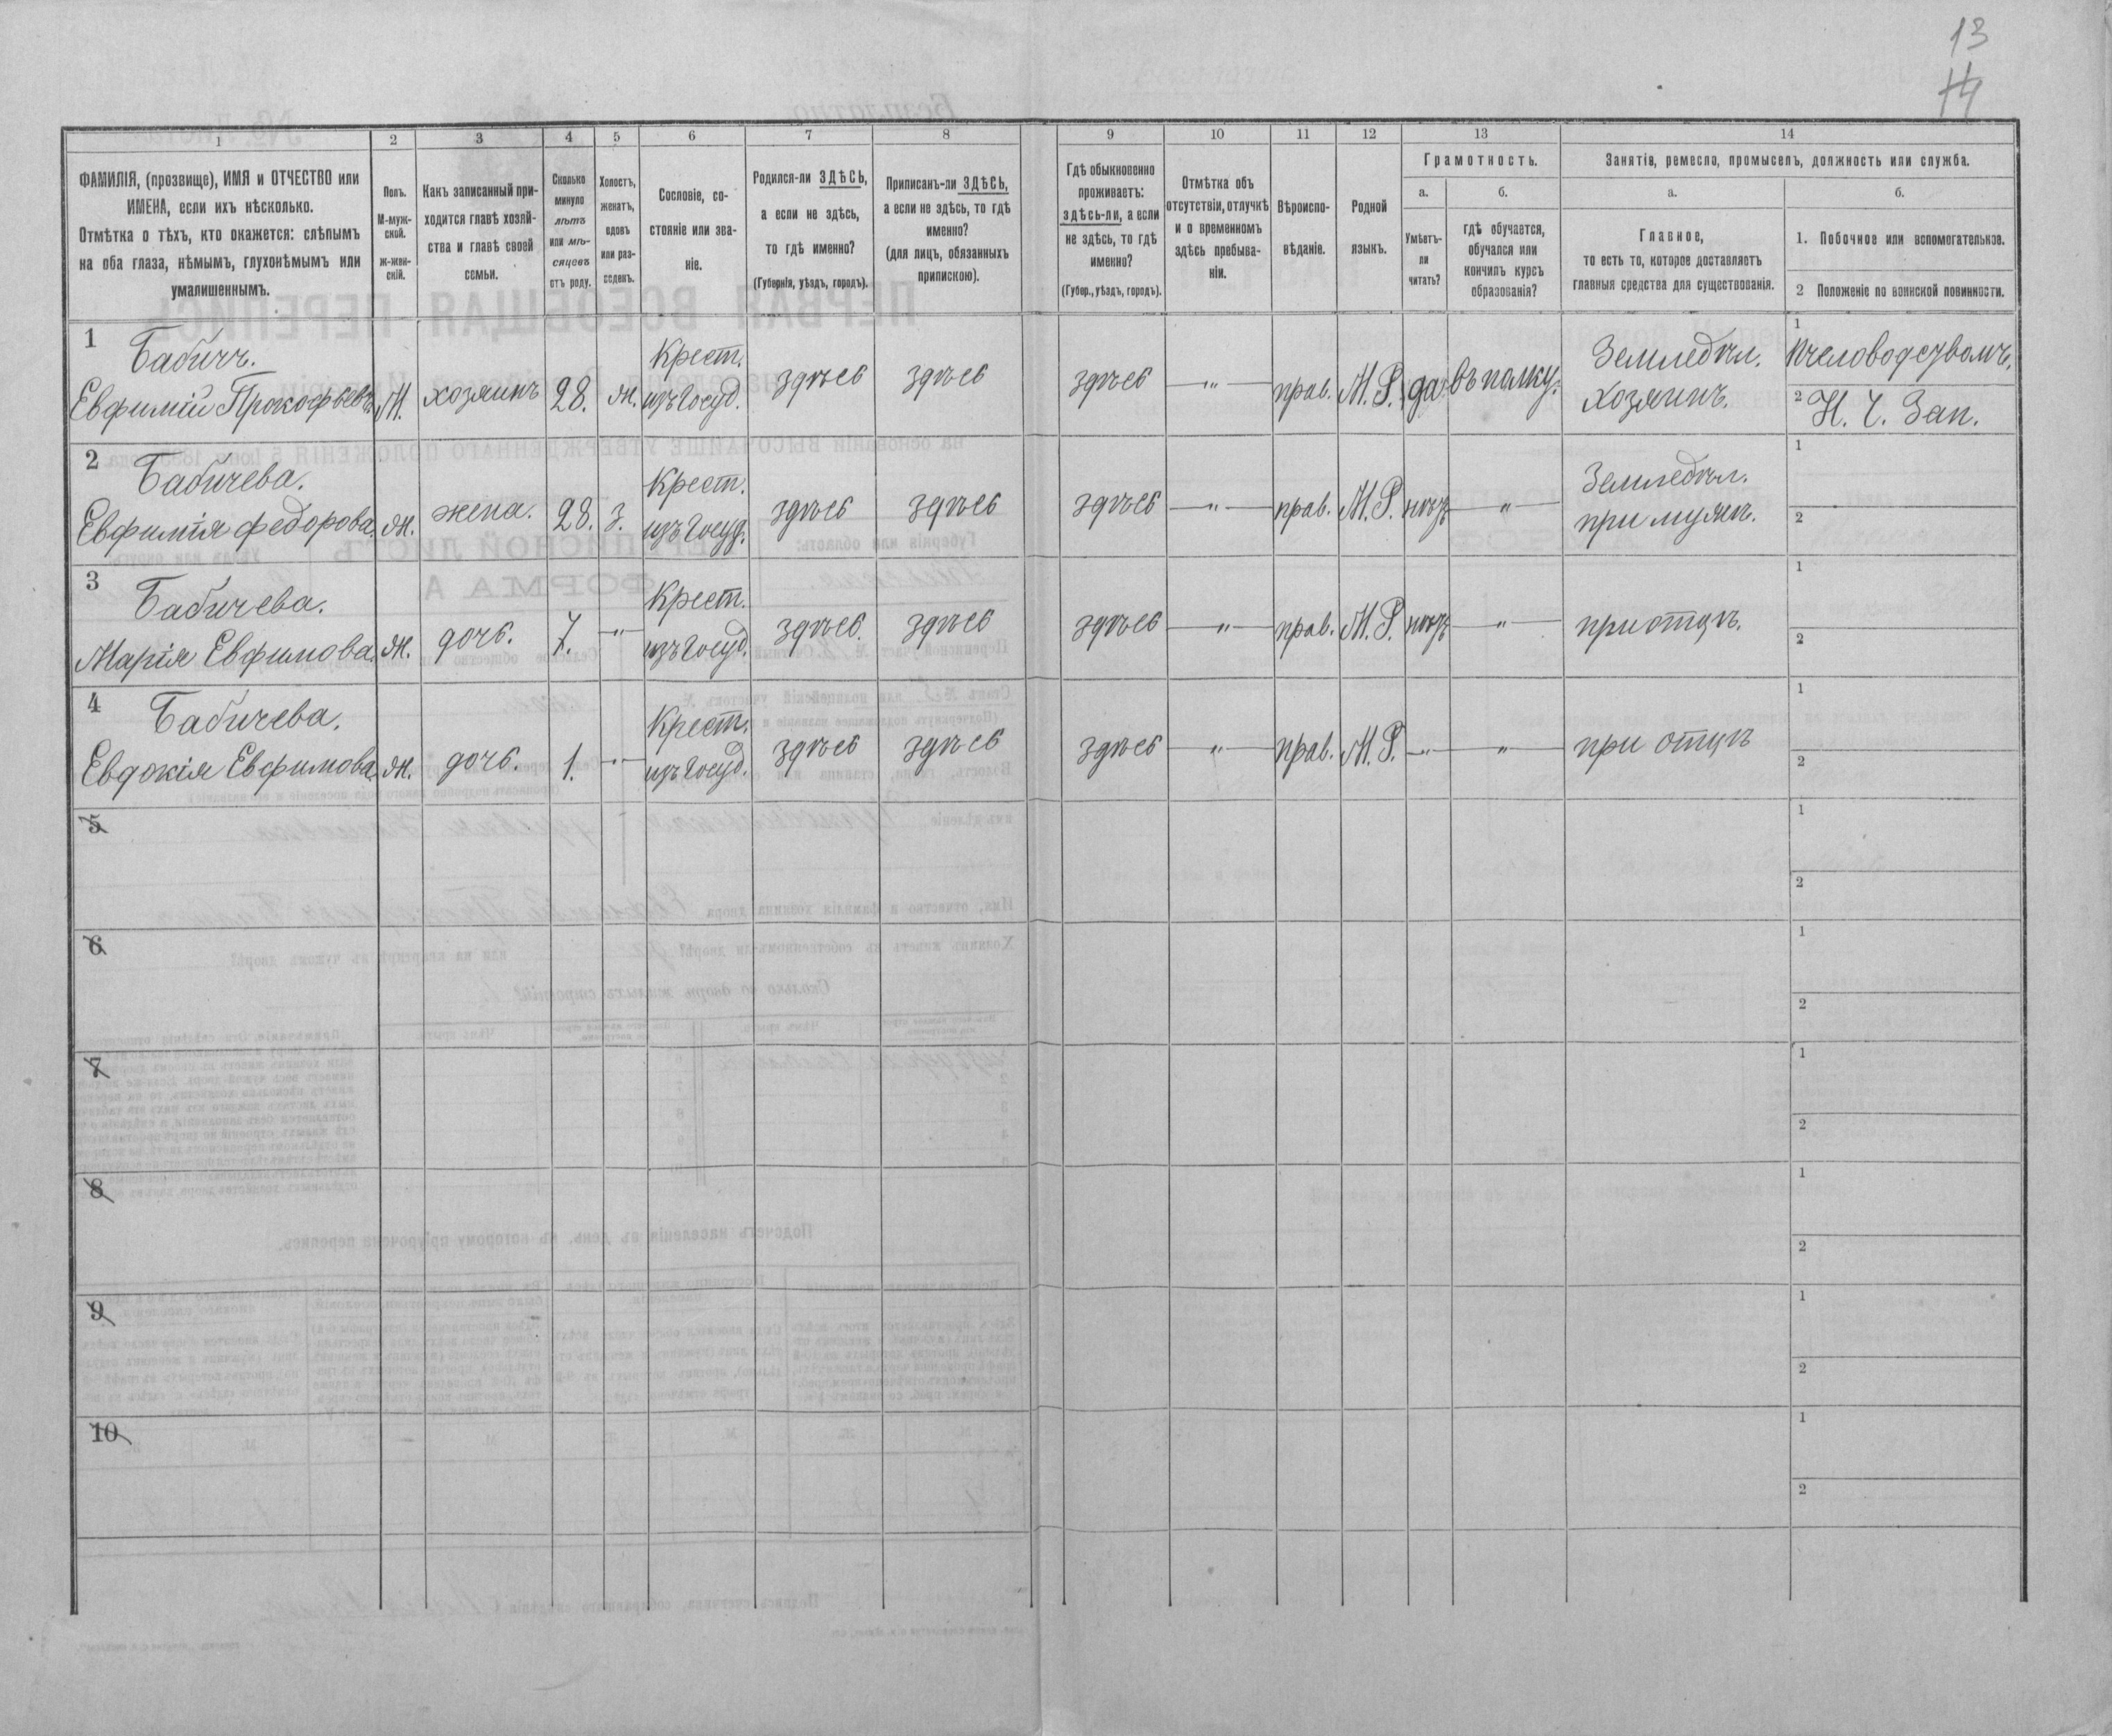 13
14
1
2
3
4
5
6
7
8
9
10
11
12
13
14
ФАМИЛІЯ, (прозвище), ИМЯ и ОТЧЕСТВО или
ИМЕНА, если ихъ нѣсколько.
Отмѣтка о тѣхъ, кто окажется: слѣпымъ
на оба глаза, нѣмымъ, глухонѣмымъ или
умалишеннымъ.
Полъ.
М-муж-
ской.
ж-жен-
скій.
Какъ записанный при-
ходится главѣ хозяй-
ства и главѣ своей
семьи.
Сколько
минуло
лѣтъ
или мѣ-
сяцевъ
отъ роду.
Холостъ,
женатъ,
вдовъ
или раз-
веденъ.
Сословіе, со-
стояніе или зва-
ніе.
Родился-ли ЗДѢСЬ,
а если не здѣсь,
то гдѣ именно?
(Губернія, уѣздъ, городъ).
Приписанъ-ли ЗДѢСЬ,
а если не здѣсь, то гдѣ
именно?
(для лицъ, обязанныхъ
припискою).
Гдѣ обыкновенно
проживаетъ:
здѣсь-ли, а если
не здѣсь, то гдѣ
именно?
(Губер., уѣздъ, городъ).
Отмѣтка объ
отсутствіи, отлучкѣ
и о временномъ
здѣсь пребыва-
ніи.
Вѣроиспо-
вѣданіе.
Родной
языкъ.
Грамотность.
а.
Умѣетъ-
ли
читать?
б.
гдѣ обучается,
обучался или
кончилъ курсъ
образованія?
Занятія, ремесло, промыселъ, должность или служба.
а.
Главное,
то есть то, которое доставляетъ
главныя средства для существованія.
б.
1. Побочное или вспомогательное.
2 Положеніе по воинской повинности.
1
Бабичъ.
Евфимій Прокофьевъ
М.
хозяинъ
28.
ж.
Крест.
изъ Госуд.
здѣсь
здѣсь
здѣсь
— „ —
прав.
М. Р.
да
въ полку.
Земледѣл.
Хозяинъ.
1
Пчеловодствомъ.
2
Н. Ч. Зап.
2
Бабичева.
Евфимія Федорова.
ж.
жена.
28.
з.
Крест.
изъ Госуд.
здѣсь
здѣсь
здѣсь
— „ —
прав.
М. Р.
нѣтъ
— „ —
Земледѣл.
при мужѣ.
1
2
3
Бабичева.
Марія Евфимова.
ж.
дочь.
7.
— „
Крест.
изъ Госуд.
здѣсь.
здѣсь
здѣсь
— „ —
прав.
М. Р.
нѣтъ
— „ —
при отцѣ.
1
2
4
Бабичева.
Евдокія Евфимова.
ж.
дочь.
1.
— „ —
Крест.
изъ Госуд.
здѣсь
здѣсь
здѣсь
— „ —
прав.
М. Р.
— „ —
— „ —
при отцѣ
1
2
5
1
2
6
1
2
7
1
2
8
1
2
9
1
2
10
1
2